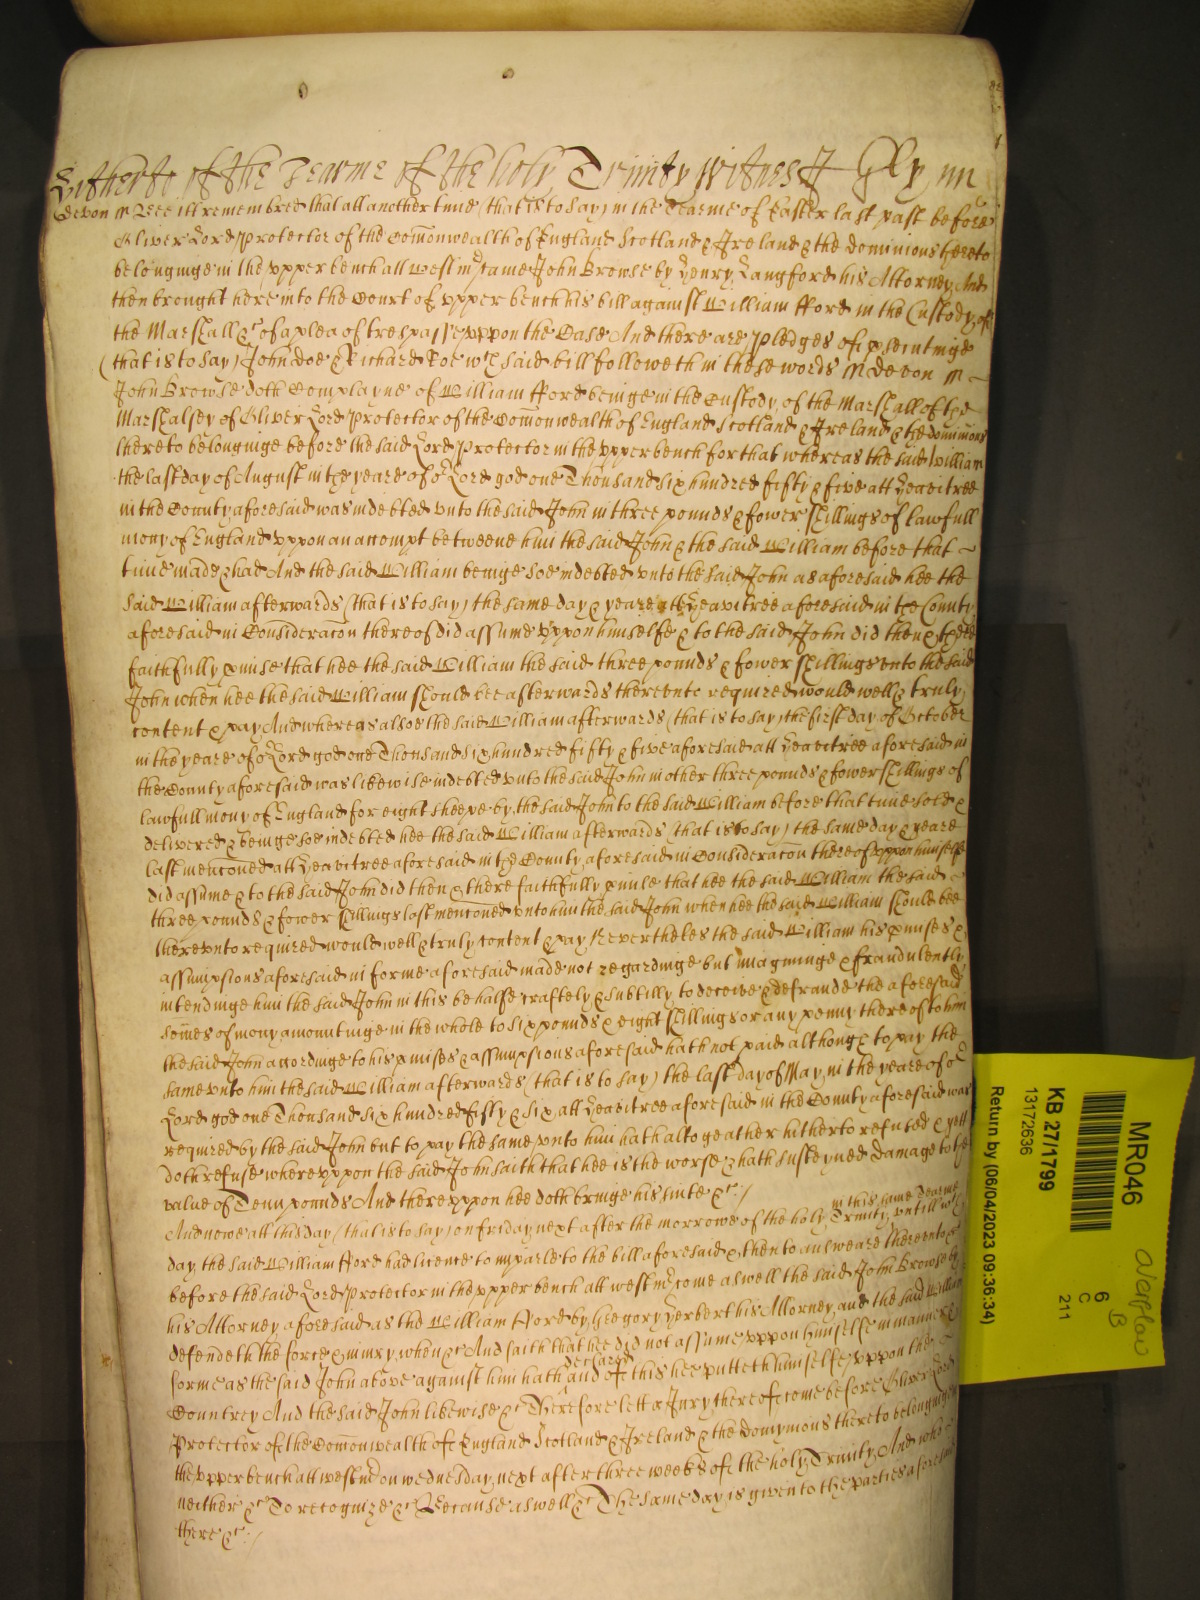 Hitherto of the Tearme of the holy Trinity Witness J Gly nn
Devon ss Bee it remembred that att another time (that is to say) in the Tearme of Easter last past before
Oliver Lord Protector of the Com̄onwealth of England Scotland & Ireland & the dominions thereto
belonginge in the vpper bench att Westmr came John Browse by Henry Langford his Attorney And
then brought here into the Court of vpper bench his bill against William fford in the Custody of
the Marshall &c of a plea of trespasse vppon the Case And there are pledges of psecutinge
(that is to say) John Doe & Richard Roe wch said bill followeth in these words ss Devon ss
John Browse doth Complayne of William fford beinge in the Custody of the Marshall of the
Marshalsey of Oliver Lord Protector of the Com̄onwealth of England Scotland & Ireland & the dominions
thereto belonginge before the said Lord Protector in the vpper bench for that whereas the said William
the last day of August in the yeare of or Lord god one Thousand six hundred fifty & five att Heavitree
in the County aforesaid was indebted vnto the said John in three pounds & fower shillings of lawfull
mony of England vppon an accompt betweene him the said John & the said William before that
time made & had And the said William beinge soe indebted vnto the said John as aforesaid hee the
said William afterwards (that is to say) the same day & yeare att Heavitree aforesaid in the County
aforesaid in Consideracōn thereof did assume vppon himselfe & to the said John did then & there
faithfully pmise that hee the said William the said three pounds & fower shillings vnto the said
John when hee the said William should bee afterwards therevnto required would well & truly
content & pay And whereas alsoe the said William afterwards (that is to say) the first day of October
in the yeare of or Lord god one Thousand six hundred fifty & five aforesaid att Heavitree aforesaid in
the County aforesaid was likewise indebted vnto the said John in other three pounds & fower shillings of
lawfull mony of England for eight sheepe by the said John to the said William before that time sold &
delivered & beinge soe indebted hee the said William afterwards (that is to say) the same day & yeare
last menc̄oned att Heavitree aforesaid in the County aforesaid in Consideracōn thereof vppon himselfe
did assume & to the said John did then & there faithfully pmise that hee the said William the said
three pounds & fower shillings last menc̄oned vnto him the said John when hee the said William should bee
therevnto required would well & truly content & pay Nevertheles the said William his pmises &
assumpsions aforesaid in forme aforesaid made not regardinge but imagininge & fraudulently
intendinge him the said John in this behalfe craftely & subtilly to deceive & defraude the aforesaid
som̄es of mony amountinge in the whole to six pounds & eight shillings or any penny thereof to him
the said John accordinge to his pmises & assumpsions aforesaid hath not paid although to pay the
same vnto him the said William afterwards (that is to say) the last day of May in the yeare of or
Lord god one Thousand six hundred fifty & six att Heavitree aforesaid in the County aforesaid was
required by the said John but to pay the same vnto him hath altogeather hitherto refused & yett
doth refuse wherevppon the said John saith that hee is the worse & hath susteyned damage to the
value of Tenn pounds And therevppon hee doth bringe his suite &c./
And nowe att this day (that is to say) on friday next after the morrowe of the holy Trinity in this same Tearme vntill wch
day the said William fford had licence to imparle to the bill aforesaid & then to answeare therevnto &c
before the said Lord Protector in the vpper bench att westmr come aswell the said John Browse by
his Attorney aforesaid as the William fford by Gregory Herbert his Attorney and the said William
defendeth the force & iniury when &c And saith that hee did not assume vppon himselfe in manner &
forme as the said John above against him hath declared and of this hee putteth himselfe vppon the
Countrey And the said John likewise &c Therefore lett a Jury thereof come before Oliver Lord
Protector of the Com̄onwealth of England Scotland & Ireland & the Domynions thereto belonginge in
the vpper bench att westmr on wednesday next after three weeks of the holy Trinity And who
neither &c To recognize &c Because aswell &c The same day is given to the parties aforesaid
there &c./
MR046
KB 27/1799
13172636
Return by (06/04/2023 09:36:34)
6
C
211
B